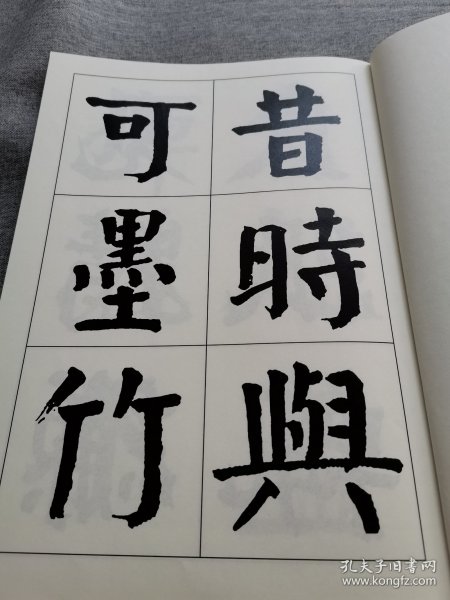 昔時與
可墨竹
孔夫子旧书网
www.kongfz.com